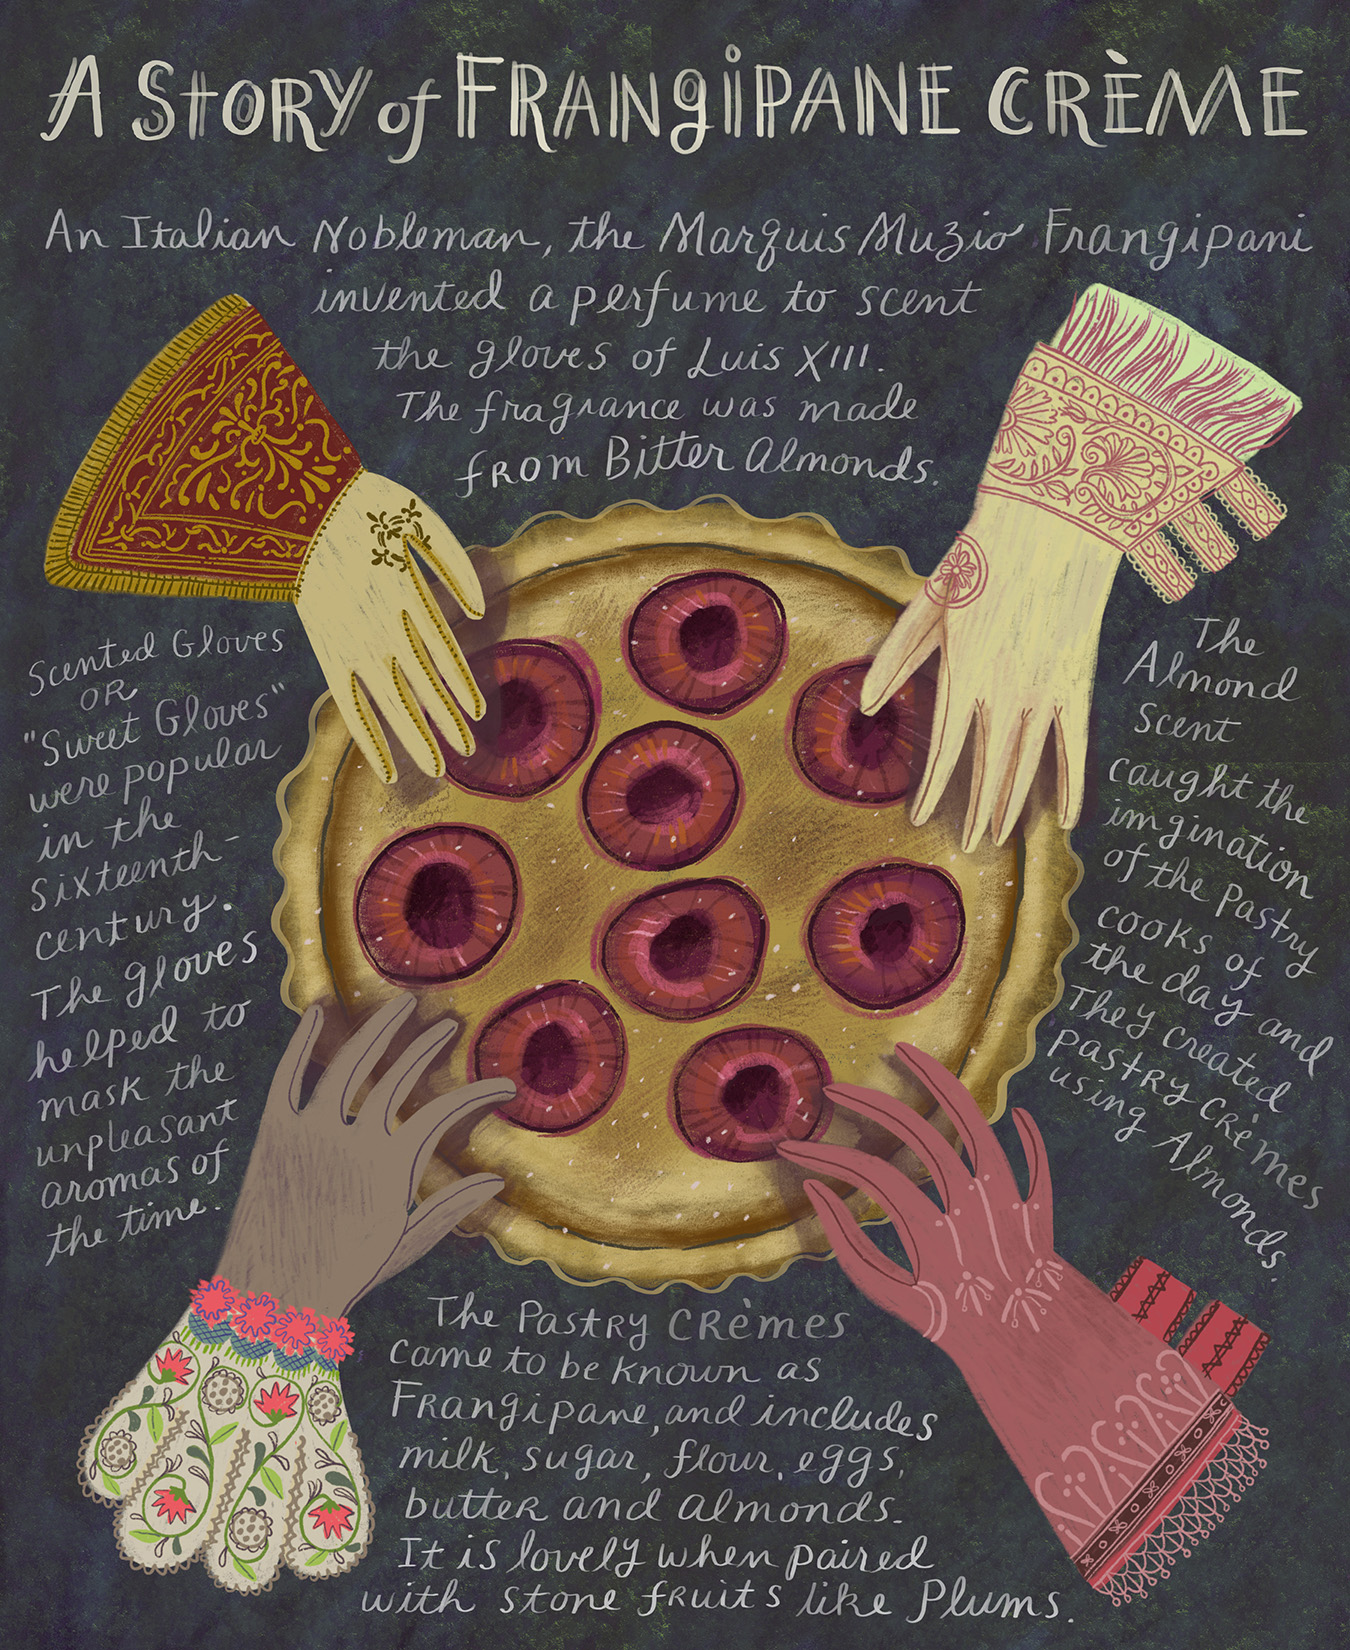 A Story of Frangipane Crème
An Italian Nobleman, the Marquis Muzio Frangipani
invented a perfume to scent
the gloves of Luis XIII.
The fragrance was made
from Bitter Almonds.
Scented Gloves
or
"Sweet Gloves"
were popular
in the
Sixteenth-
century.
The gloves
helped to
mask the
unpleasant
aromas of
the time.
The
Almond
Scent
caught the
imgination
of the Pastry
cooks of
the day and
They created
pastry crèmes
using Almonds.
The Pastry Crèmes
came to be known as
Frangipane, and includes
milk, sugar, flour, eggs,
butter and almonds.
It is lovely when paired
with stone fruits like Plums.